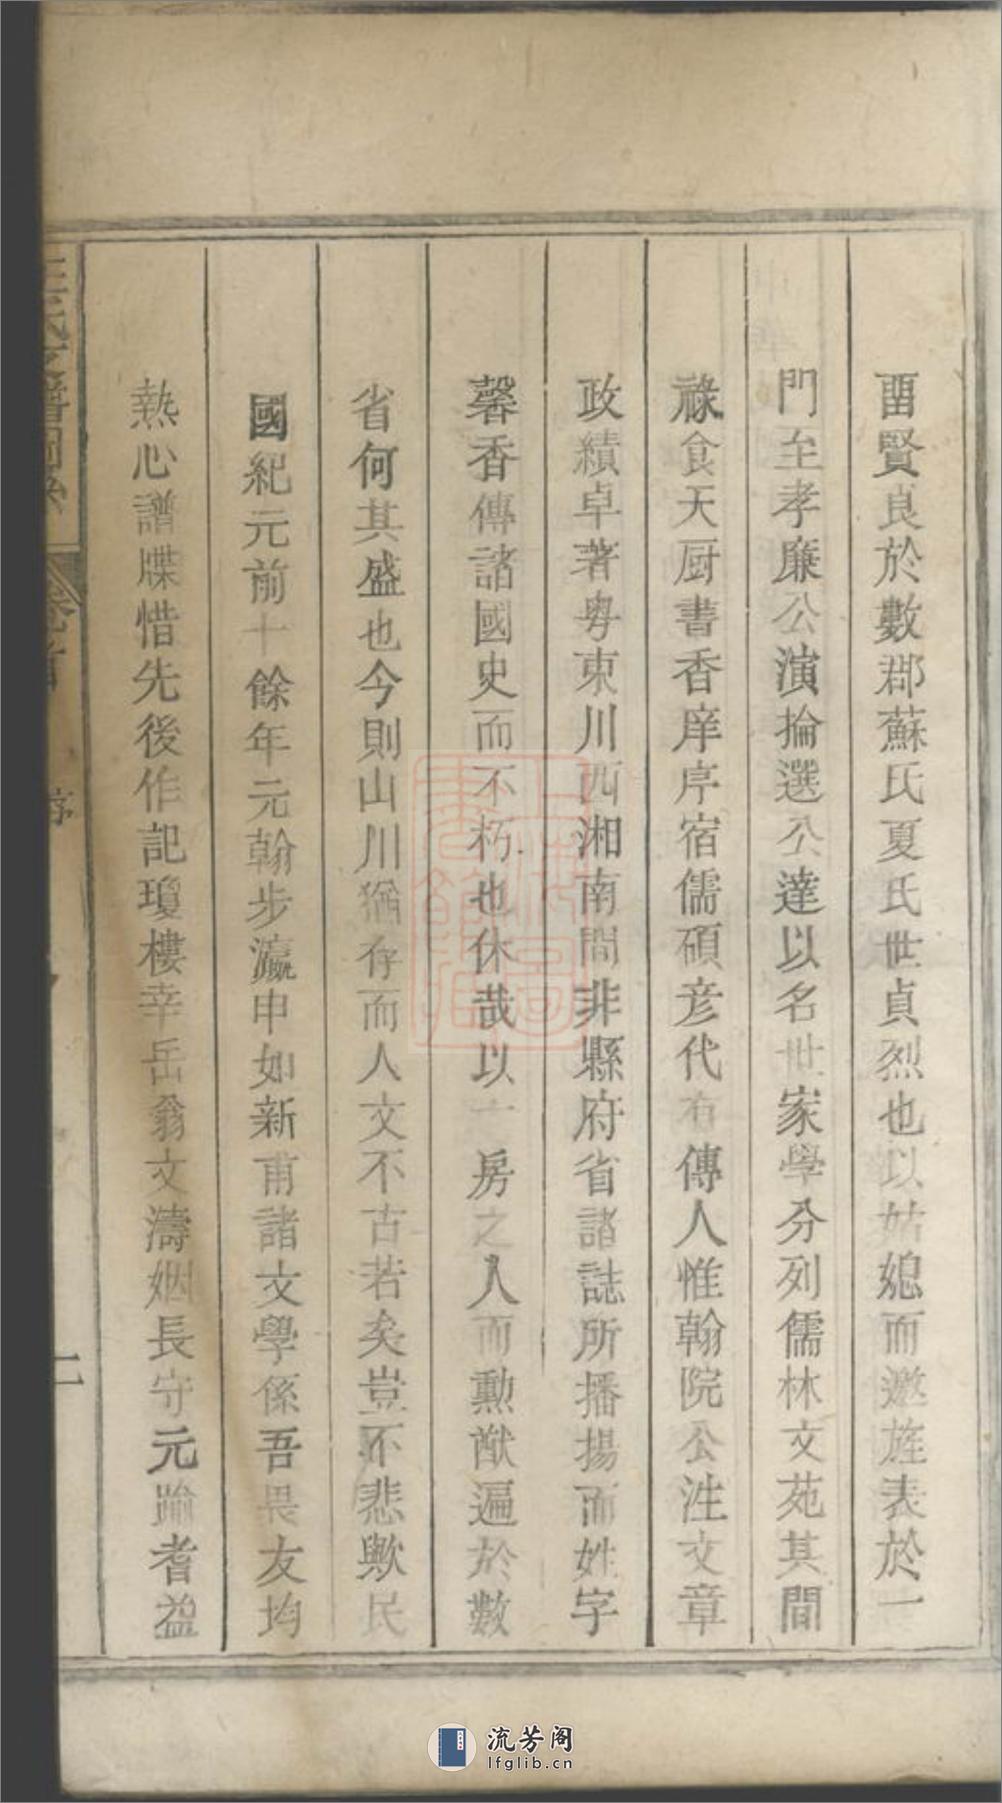 畱賢良於數郡蘇氏夏氏世貞烈也以姑媳而邀旌表於一
門至孝廉公演掄選公達以名世家學分列儒林文苑其間
祿食天厨書香庠序宿儒碩彥代有傳人惟翰院公泩文章
政績卓著粤東川西湘南間非縣府省諸誌所播揚而姓字
馨香傳諸國史而不朽也休哉以一房之人而勳猷遍於數
省何其盛也今則山川猶存而人文不古若矣豈不悲歟民
國紀元前十餘年元翰步瀛申如新甫諸文學係吾畏友均
熱心譜牒惜先後作記瓊樓幸岳翁文濤姻長守元踰耆益
氏支譜 卷首
序
二
流芳阁
lfglib.cn